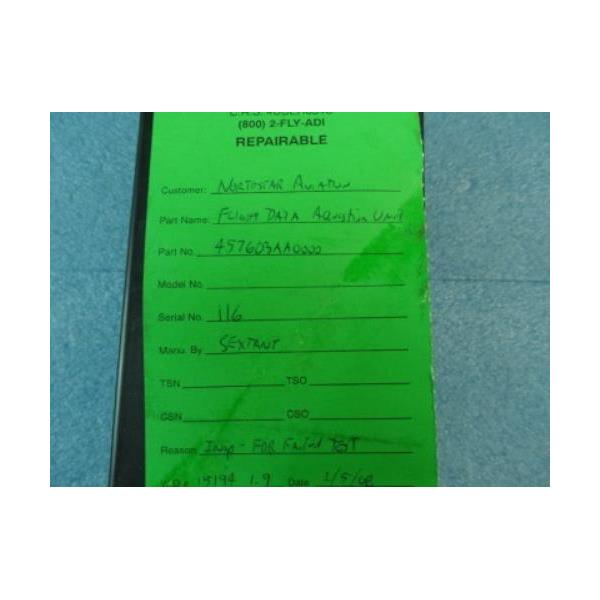 (800) 2-FLY-ADI
REPAIRABLE
Customer: NORTHSTAR AVIATION
Part Name: FLIGHT DATA Aquistion UNIT
Part No. 457603AA0000
Model No.
Serial No. 116
Manu. By SEXTANT
TSN TSO
CSN CSO
Reason: Insp - FOR Failed
15194 1.9 Date